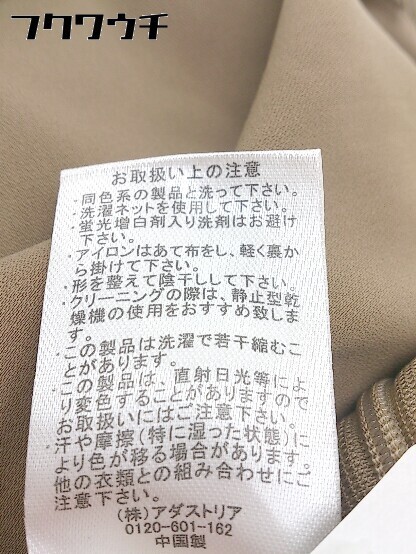 フクワウチ
お取扱い上の注意
・同色系の製品と洗って下さい。
・洗濯ネットを使用して下さい。
・蛍光増白剤入り洗剤はお避け
下さい。
・アイロンはあて布をし、軽く裏か
ら掛けて下さい。
・形を整えて陰干しして下さい。
・クリーニングの際は、静止型乾
燥機の使用をおすすめ致しま
す。
・この製品は洗濯で若干縮むこ
とがあります。
・この製品は、直射日光等によ
り変色することがありますので
お取扱いにはご注意下さい。
汗や摩擦（特に湿った状態）に
より色が移る場合があります。
他の衣類との組み合わせにご
注意下さい。
（株）アダストリア
0120-601-162
中国製